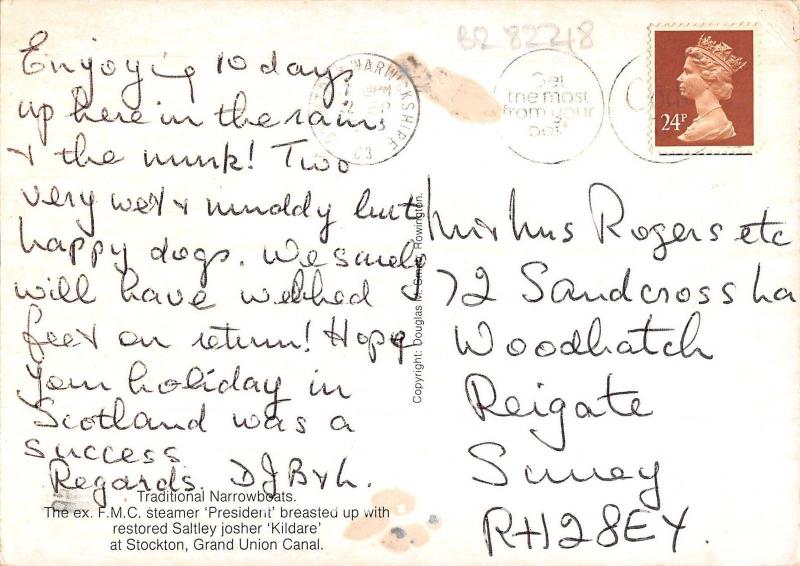 BR 82248
Enjoying 10 days
up here in the rain
& the munk! Two
very wet & muddy but
happy dogs. We
will have webbed
feet on return! Hope
your holiday in
Scotland was a
success
Regards. DJB & L.
WARWICKSHIRE
Get
the most
from your
Post
24P
Mr & Mrs Rogers etc
72 Sandcross La
Woodhatch
Reigate
Surrey
RH2 8EY.
Copyright: Douglas M. Smith, Rowington.
Traditional Narrowboats.
The ex. F.M.C. steamer 'President' breasted up with
restored Saltley josher 'Kildare'
at Stockton, Grand Union Canal.